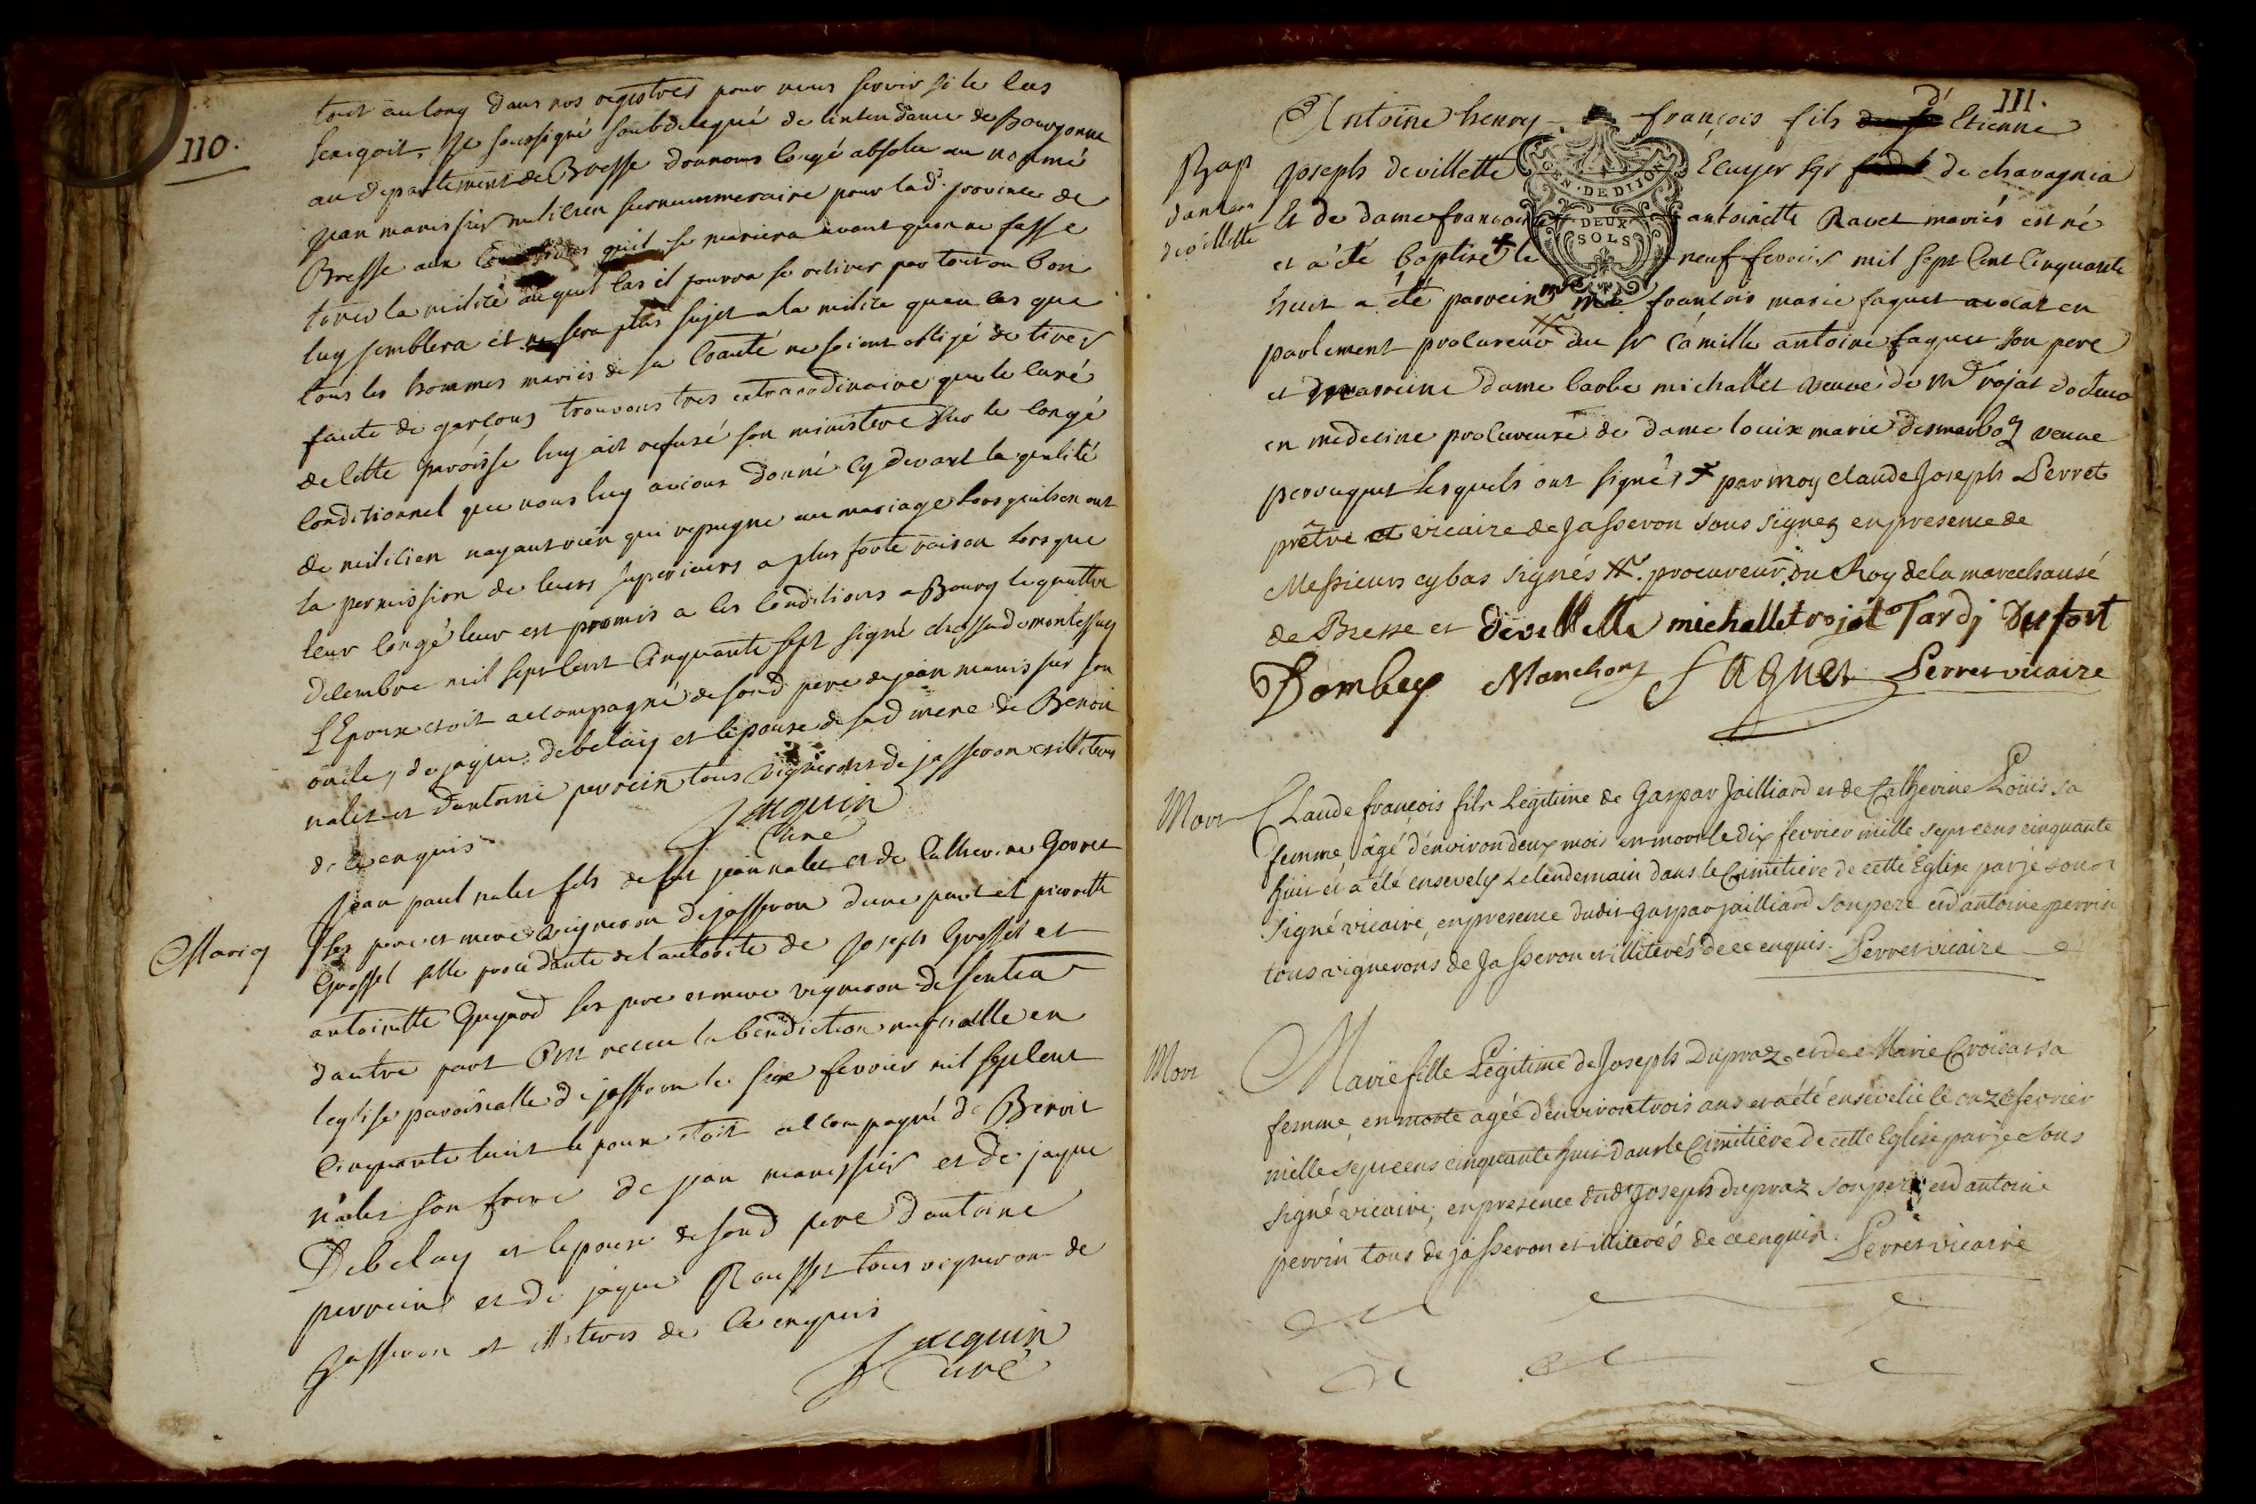 110.
tout au long dans nos registres pour nous servir si le cas
lexigoit, Je soussigné subdelegué de lintendance de Bourgonne
au departement de Bresse donnons congé absolu au nommé
jean manissier milicien surnummeraire pour lad. province de
Bresse aux conditions quil se mariera avant quon ne fasse
tirer la milice auquel cas il pourra se retirer par tout ou bon
luy semblera et ne sera plus sujet a la milice quau cas que
tous les hommes mariés de sa Coauté ne soient obligé de tirer
faute de garçons trouvons tres extraordinaire que le curé
de cette paroisse luy ait refusé son ministere sur le congé
conditionnel que nous luy avions donné cy devant la qualité
de milicien nayant rien qui repugne au mariage lors quils en ont
la permission de leurs superieurs a plus forte raison lors que
leur congé leur est promis a ces conditions a Bourg le quattre
decembre mil sept cent cinquante sept signé chossat de montessuy
L'Epoux etoit accompagné de sond pere de jean manissier son
oncle, de jaque debelay et lepouse de sad mere de Benoit
nalet et dantoine perrein tous vignerons de jasseron et illiteres
de ce enquis
Jacquin
Curé
Mariag
Jean paul nalet fils de feu jean nalet et de Catherine Gorret
ses pere et mere vigneron de jasseron dune part et pierrette
Grosset fille procedante de lautorité de Joseph Grosset et
antoinette Guyrod ses pere et mere vigneron de sentia
dautre part Ont receu la benediction nuptialle en
leglise paroissialle de jasseron le six fevrier mil sept cent
cinquante huit lepoux etoit accompagné de Benoit
nalet son frere de jean manissier et de jaque
Debelay et lepouse de sond pere dantoine
perrein et de jaque Rousset tous vigneron de
Jasseron et illiteres de ce enquis
Jacquin
Curé
111.
Bap
dantoin
devillette
Antoine henry françois fils d' Etienne
Joseph devillette Ecuyer sgr de chavagnia
Et de dame francoise antoinette Ravet mariés est né
et a été baptisé le neuf fevrier mil sept cent cinquante
huit a été parrein mre françois marie faguet avocat en
parlement procureur du sr camille antoine faguet son pere
et marreine dame barbe michallet veuve de mr rojat docteur
en medecine procureuse de dame louise marie desmarboz veuve
perruquet lesquels ont signés par moy claude Joseph Perret
prêtre et vicaire de Jasseron sous signez en presence de
Messieurs cy bas signés procureur du Roy de la marechausé
de Bresse et devillette michallet rojat Tardj Dufort
Dombey Manchon faguet Perret vicaire
Mort
Claude françois fils Legitime de Gaspar Jailliard et de Catherine Loüis sa
femme, âgé d'environ deux mois est mort le dix fevrier mille sept cens cinquante
huit et a été ensevely le lendemain dans le Cimetiere de cette Eglise par je sous
signé vicaire, en presence dudit gaspar jailliard son pere et d'antoine perrin
tous vignerons de Jasseron et illiterés de ce enquis. Perret vicaire
Mort
Marie fille Légitime de Joseph Dupraz et de Marie Croizat sa
femme, est morte agée denviron trois ans et a été ensevelie le onze fevrier
mille sept cens cinquante huit dans le Cimitiére de cette Eglise par je sous
signé vicaire, en presence dudt Joseph dupraz son pere, et d'antoine
perrin tous de jasseron et illiterés de ce enquis. Perret vicaire
GEN. DE DIJON
DEUX
SOLS